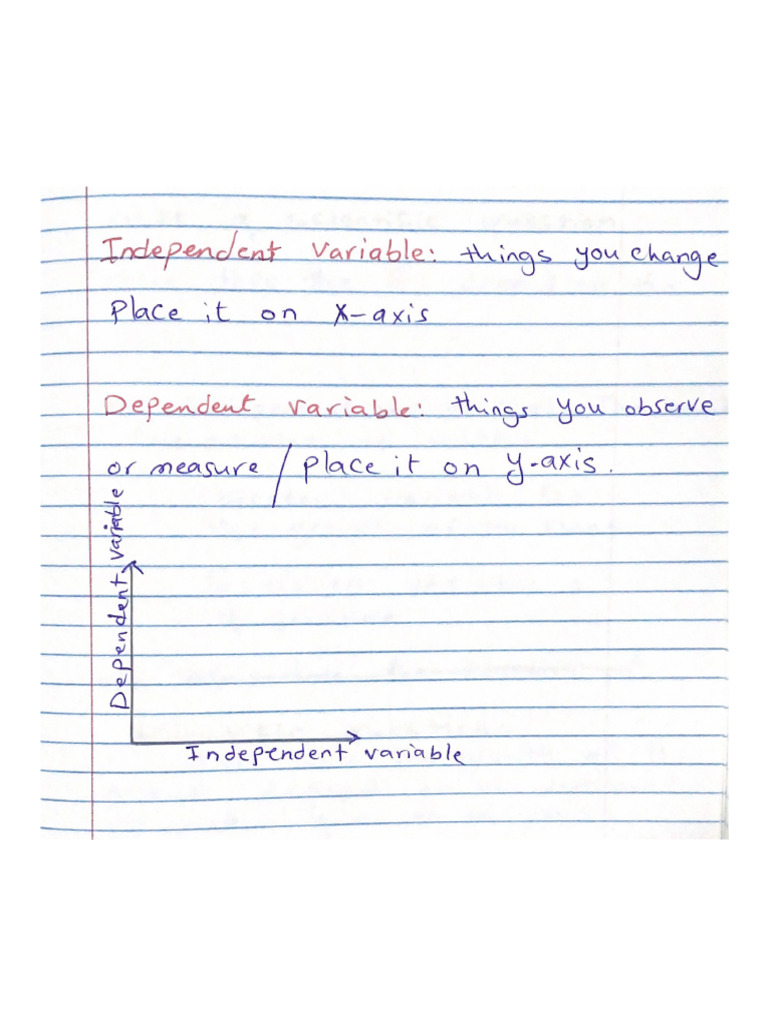 Independent variable: things you change
Place it on x-axis
Dependent variable: things you observe
or measure / place it on y-axis.
Dependent variable
Independent variable